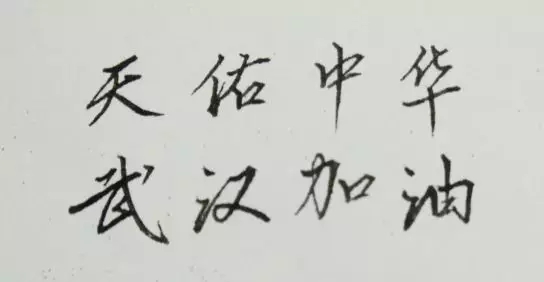 天佑中华
武汉加油